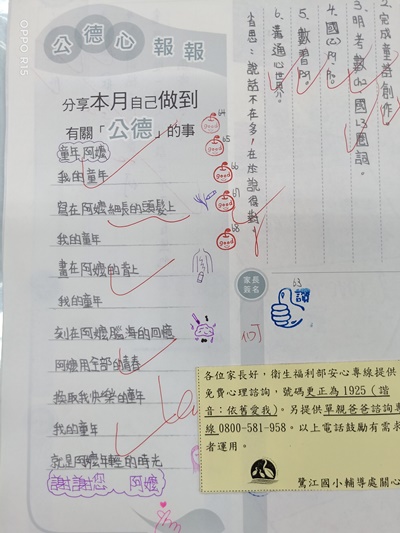 公德心報報
分享本月自己做到
有關「公德」的事
童年阿嬤
我的童年
寫在阿嬤細長的頭髮上
我的童年
畫在阿嬤的背上
我的童年
刻在阿嬤腦海的回憶
阿嬤用全部的青春
換取我快樂的童年
我的童年
就是阿嬤年輕的時光
謝謝您 阿嬤
64
good
65
good
66
good
67
good
68
good
2.完成童詩創作。
3.明考數ch2國L3圈詞。
4.國
5.數習
6.書
省思:說話不在多,在
家長簽名
63
讚
各位家長好,衛生福利部安心專線提供
免費心理諮詢,號碼更正為1925(諧
音:依舊愛我)。另提供單親爸爸諮詢專
線0800-581-958。以上電話鼓勵有需求
者運用。
鷺江國小輔導處關心
OPPO R15